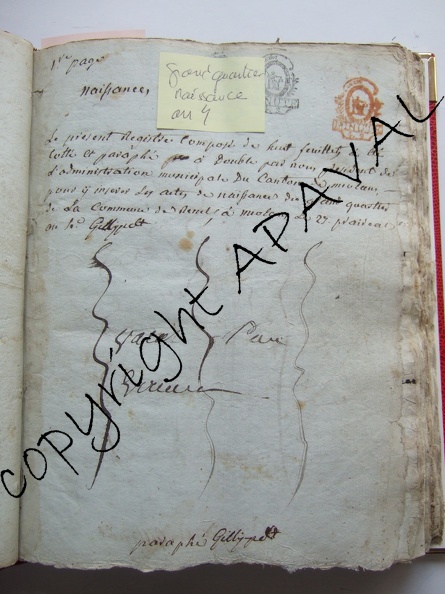 1ere page
naissances
grand quartier
naissance
an 4
Le présent Registre composé de huit feuillets
Cotté et paraphé a double par nous président de
l'administration municipale Du Canton de meulan
pour y inserer Les actes de naissance du grand quartier
De La Commune de a meulan Le 27 prairial
an 4e Gillyppett
paraphé Gillyppett
copyright APAVAL